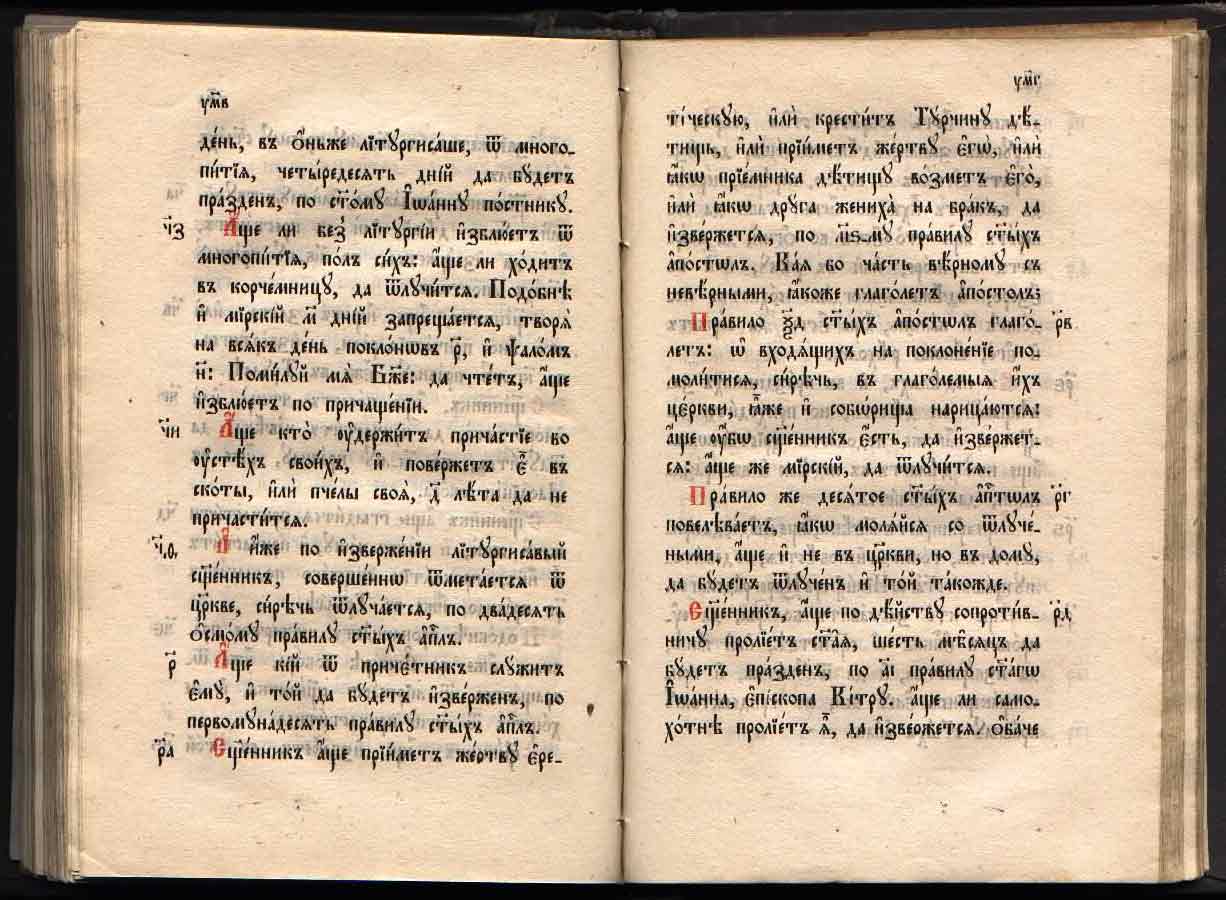 ум҃в
де́нь, въ ѻ҆́ньже лїтꙋргиса́ше, ѿ много-
пи́тїѧ, четы́редесѧть дні́й да бꙋ́детъ
пра́зденъ, по ст҃о́мꙋ І҆ѡа́ннꙋ по́стникꙋ.
ч҃з А҆́ще ли без̾ лїтꙋргі́и и҆зблю́етъ ѿ
многопи́тїѧ, по́лъ си́хъ: а҆́ще ли хо́дитъ
въ корче́мницꙋ, да ѿлꙋчи́тсѧ. Подо́бнѣ
и҆ мїрскі́й м҃ дні́й запреща́етсѧ, творѧ̀
на всѧ́къ де́нь покло́нѡвъ р҃, и҆ ѱало́мъ
н҃: Поми́лꙋй мѧ̀ Бж҃е: да чте́тъ, а҆́ще
и҆зблю́етъ по причаще́нїи.
ч҃и А҆́ще кто̀ ᲂу҆держи́тъ прича́стїе во
ᲂу҆стѣ́хъ свои́хъ, и҆ пове́ржетъ є҆̀ въ
ско́ты, и҆лѝ пче́лы своѧ̑, д҃ лѣ́та да не
причасти́тсѧ.
ч҃ѳ. И҆́же по и҆зверже́нїи лїтꙋргиса́вый
сщ҃е́нникъ, соверше́ннѡ ѿмета́етсѧ ѿ
цр҃кве, си́рѣчь ѿлꙋча́етсѧ, по два́десѧть
ѻ҆смо́мꙋ пра́вилꙋ ст҃ы́хъ а҆пл҃ъ.
р҃ А҆́ще кі́й ѿ приче́тникъ слꙋ́житъ
є҆мꙋ̀, и҆ то́й да бꙋ́детъ и҆зве́рженъ, по
первомꙋна́десѧть пра́вилꙋ ст҃ы́хъ а҆пл҃ъ.
р҃а Сщ҃е́нникъ а҆́ще прїи́метъ же́ртвꙋ є҆ре-
ум҃г
ті́ческꙋю, и҆лѝ крести́тъ Тꙋ́рчинꙋ дѣ́-
тищь, и҆лѝ прїи́метъ же́ртвꙋ є҆гѡ̀, и҆лѝ
ꙗ҆́кѡ прїе́мника дѣ́тищꙋ во́зметъ є҆го̀,
и҆лѝ ꙗ҆́кѡ дрꙋ́га жениха̀ на бра́къ, да
и҆зве́ржетсѧ, по м҃ѕ-мꙋ пра́вилꙋ ст҃ы́хъ
а҆по́столъ. Ка́ѧ бо ча́сть вѣ́рномꙋ съ
невѣ́рными, ꙗ҆́коже глаго́летъ а҆по́столъ;
Пра́вило ѯ҃д ст҃ы́хъ а҆по́столъ глаго́- р҃в
летъ: ѡ҆ входѧ́щихъ на поклоне́нїе по-
моли́тисѧ, си́рѣчь, въ глаго́лемыѧ и҆́хъ
це́ркви, ꙗ҆̀же и҆ собѡ́рища нарица́ютсѧ:
а҆́ще ᲂу҆́бѡ сщ҃е́нникъ є҆́сть, да и҆зве́ржет-
сѧ: а҆́ще же мїрскі́й, да ѿлꙋчи́тсѧ.
Пра́вило же десѧ́тое ст҃ы́хъ а҆пⷭ҇тѡлъ р҃г
повелѣва́етъ, ꙗ҆́кѡ молѧ́йсѧ со ѿлꙋче́-
ными, а҆́ще и҆ не въ цр҃кви, но въ домꙋ̀,
да бꙋ́детъ ѿлꙋче́нъ и҆ то́й та́кожде.
Сщ҃е́нникъ, а҆́ще по дѣ́йствꙋ сопроти́в- р҃д
ничꙋ проліе́тъ ст҃а̑ѧ, ше́сть мѣ́сѧцъ да
бꙋ́детъ пра́зденъ, по а҃і пра́вилꙋ ст҃а́гѡ
І҆ѡа́нна, є҆пі́скопа Кі́трꙋ. а҆́ще ли само-
хо́тнѣ проліе́тъ ѧ҆̀, да и҆зве́ржетсѧ. ѻ҆ба́че